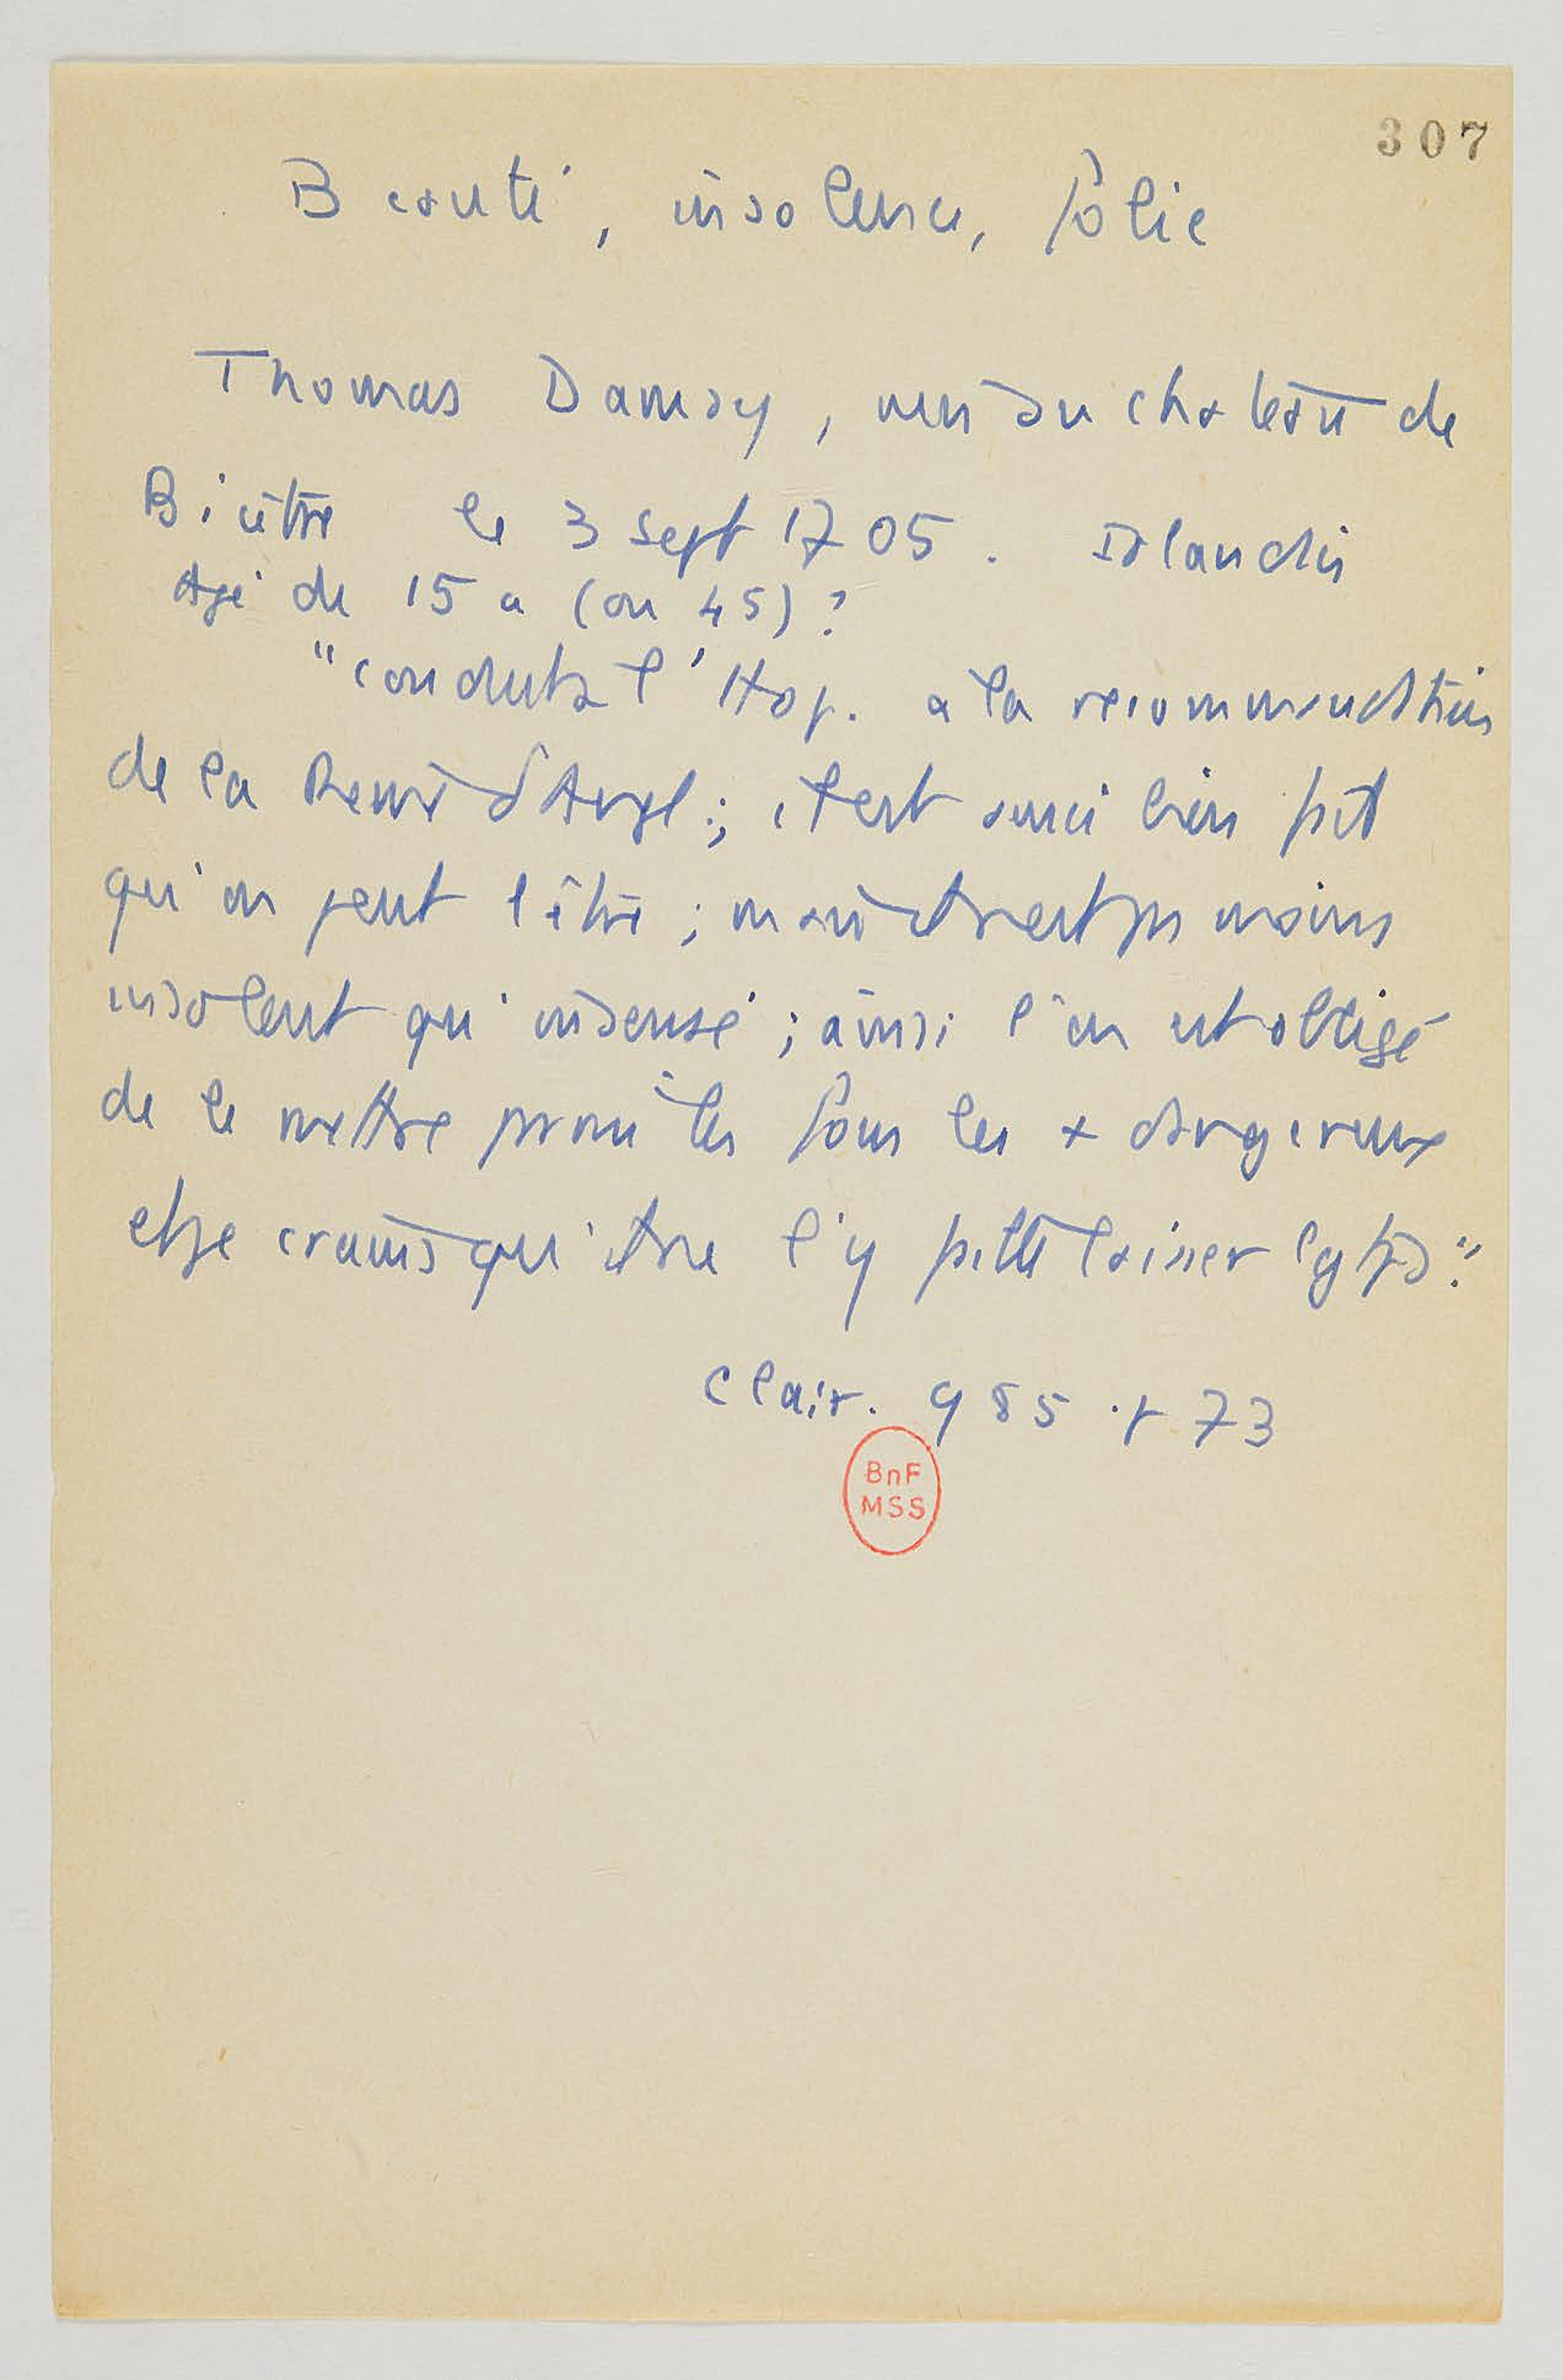 307
Beauté, insolence, folie
Thomas Damsy, mis au chateau de
Bicêtre le 3 Sept 1705. Irlandais
Agé de 15 a (ou 45)?
"conduit à l'Hop. à la recommandation
de la Reine d'Angl.; il est aussi bien fait
qu'on peut l'être; mais il n'est pas moins
insolent qu'insensé; ainsi l'on est obligé
de le mettre parmi les fous les + dangereux
et je crains qu'il ne l'y faille laisser lgtps."
Clair. 985 p 73
BnF
MSS